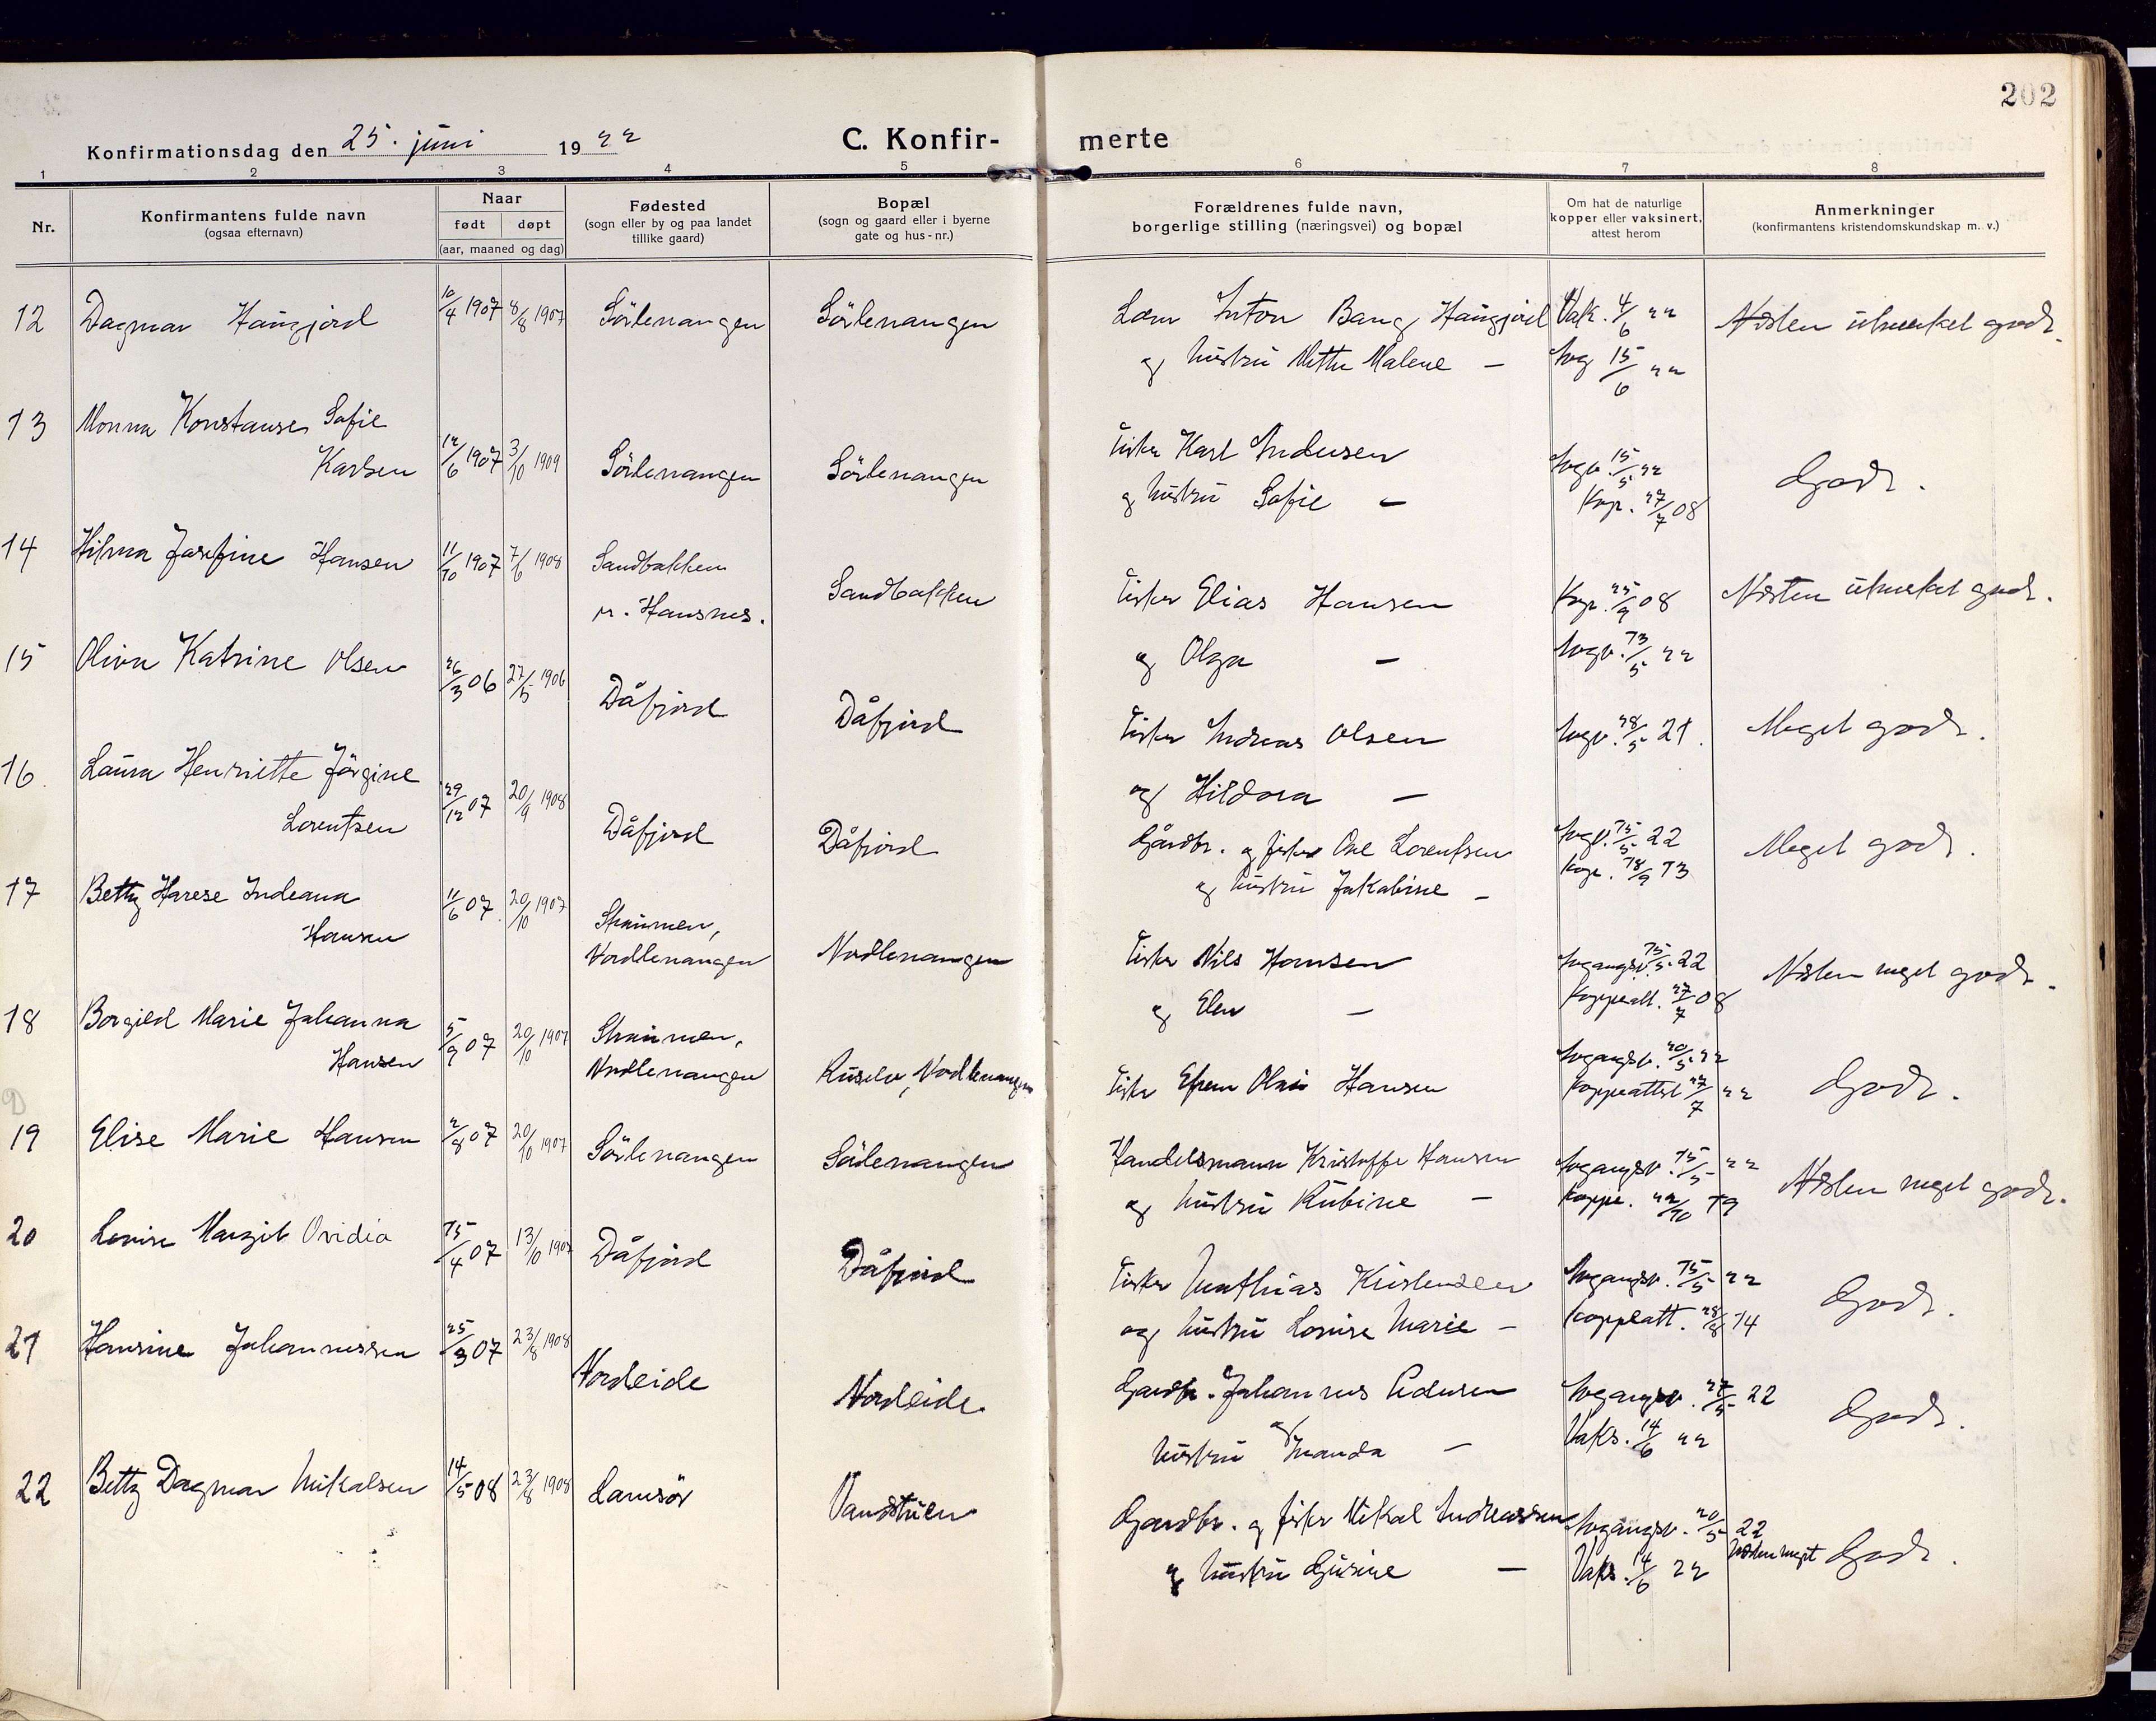 202
Konfirmationsdag den 25. juni 1922
C. Konfir-
merte
1 2 3 4 5 6 7 8
Nr.
Konfirmantens fulde navn
(ogsaa efternavn)
Naar
født døpt
(aar, maaned og dag)
Fødested
(sogn eller by og paa landet
tillike gaard)
Bopæl
(sogn og gaard eller i byerne
gate og hus-nr.)
Forældrenes fulde navn,
borgerlige stilling (næringsvei) og bopæl
Om hat de naturlige
kopper eller vaksinert,
attest herom
Anmerkninger
(konfirmantens kristendomskundskap m. v.)
12 Dagmar Haugjord 10/4 1907 8/8 1907 Sörlenangen Sörlenangen Anton Bang Haugjord Vak. 4/6 22 Næsten utmerket godt.
og hustru Mette Malene — 15/6 22
13 Monna Konstanse Sofie
Karlsen 12/6 1907 3/10 1909 Sörlenangen Sörlenangen Fisker Karl Andersen 15/5 22 Godt.
og hustru Sofie — Kop. 27/7 08
14 Hilma Josefine Hansen 11/10 1907 7/6 1908 Sandbakken
Hansnes. Sandbakken Fisker Elias Hansen Kop. 25/9 08 Næsten utmerket godt.
og Olga — Sogv. 13/5 22
15 Oliva Katrine Olsen 26/3 06 27/5 1906 Dåfjord Dåfjord Fisker Andreas Olsen 28/5 21. Meget godt.
og Hildora —
16. Laura Henriette Jörgine
Lorentsen 29/12 07 20/9 1908 Dåfjord Dåfjord Gårdbr. og fisker Ole Lorentsen 15/5 22 Meget godt.
og hustru Jakobine — Kop. 18/9 13
17 Betty Harese Indeana
Hansen 11/6 07. 20/10 1907 Straumen,
Nordlenangen Nordlenangen Fisker Nils Hansen 15/5 22 Næsten meget godt.
og Elen — Koppeatt. 27/7 08
18 Borgild Marie Johanna
Hansen 5/9 07 20/10 1907 Straumen,
Nordlenangen Nordlenangen Fisker Efrem Olai Hansen 20/5 22 Godt.
Koppeattest 27/7 22
19 Elise Marie Hansen 2/8 07 20/10 1907 Sörlenangen Sörlenangen Handelsmann Kristoffer Hansen 15/5 22 Næsten meget godt.
og hustru Rubine — Koppe. 22/10 19
20 Lovise Margit Ovidia 15/4 07 13/10 1907 Dåfjord Dåfjord Fisker Mathias Kristensen 15/5 22 Godt.
og hustru Lovise Marie — Koppeatt. 28/8 14
21 Hansine Johannessen 25/3 07 23/8 1908 Nordeide Nordeide. Gardbr. Johannes Pedersen 27/5 22 Godt.
og
hustru Amanda — Vaks. 14/6 22
22 Betty Dagmar Mikalsen 14/5 08 23/8 1908 Lansör Vandstuen Gardbr. og fisker Mikal Andreassen 20/5 22
og hustru Gusine — Vaks. 14/6 22 Næsten meget Godt.